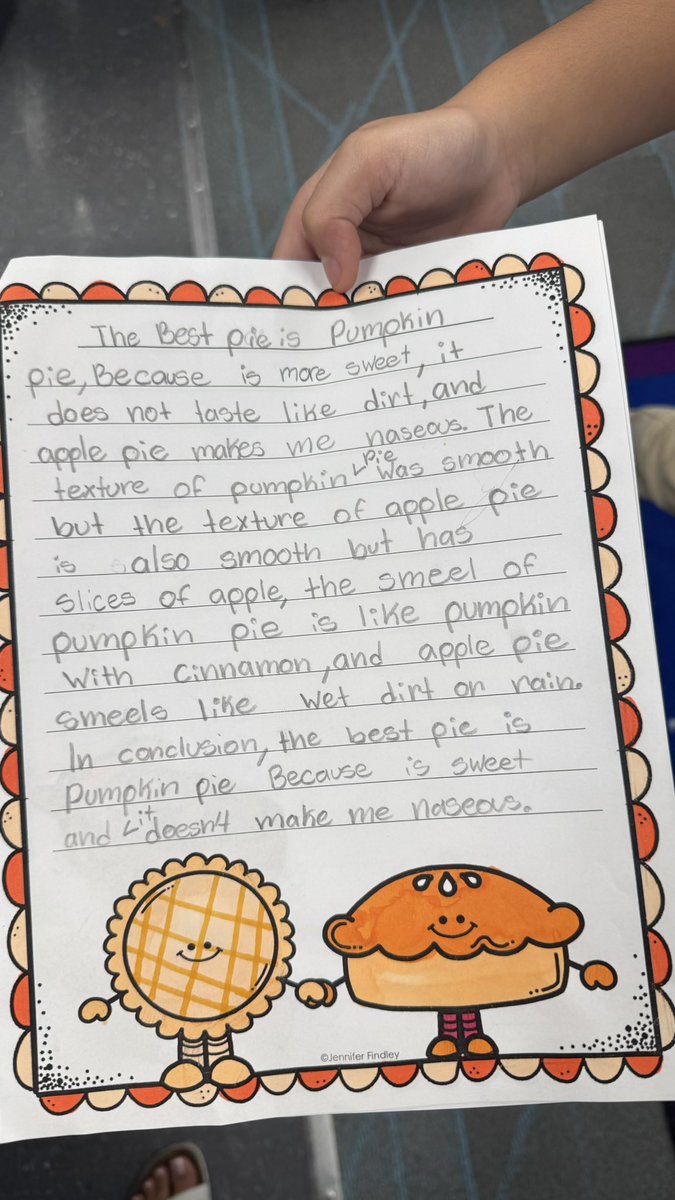 The Best pie is Pumpkin
pie, Because is more sweet, it
does not taste like dirt, and
apple pie makes me naseous. The
texture of pumpkin pie was smooth
but the texture of apple pie
is also smooth but has
slices of apple, the smeel of
pumpkin pie is like pumpkin
with cinnamon, and apple pie
smeels like wet dirt on rain.
In conclusion, the best pie is
Pumpkin pie Because is sweet
and it doesn4 make me naseous.
©Jennifer Findley